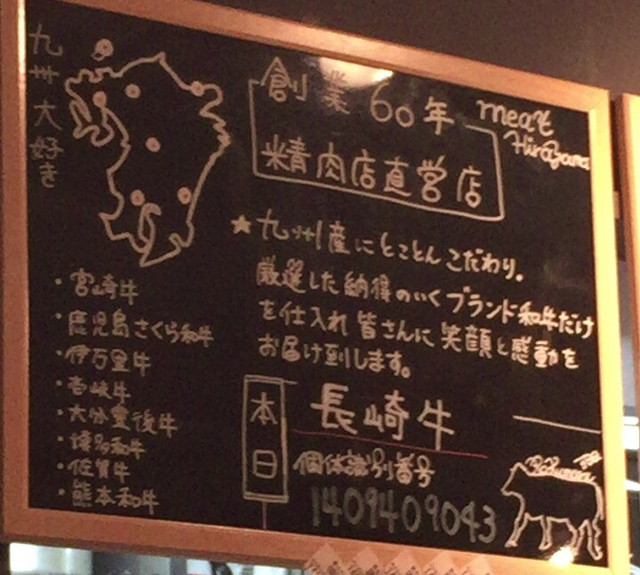 九州大好き
創業60年
meat
Hirayama
精肉店直営店
★九州産にとことんこだわり。
厳選した納得のいくブランド和牛だけ
を仕入れ皆さんに笑顔と感動を
お届け致します。
・宮崎牛
・鹿児島さくら和牛
・伊万里牛
・壱岐牛
・大分豊後牛
・博多和牛
・佐賀牛
・熊本和牛
本日
長崎牛
個体識別番号
1409409043